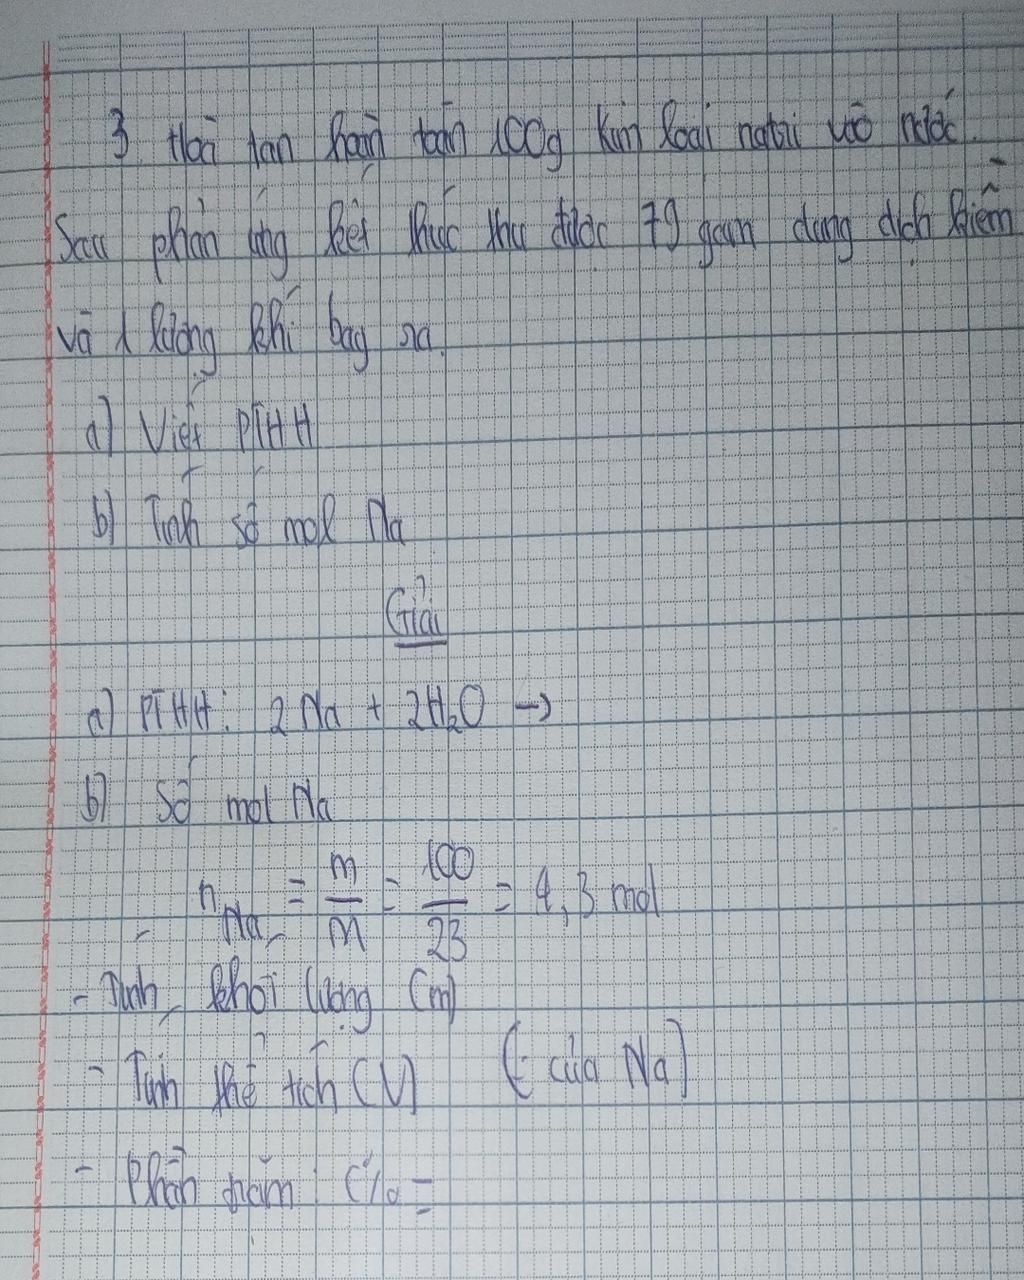 3. Hoà tan hoàn toàn 100g kim loại natri vào nước.
Sau phản ứng kết thúc thu được 79 gam dung dịch kiềm
và 1 lượng khí bay ra.
a) Viết PTHH
b) Tính số mol Na
Giải
a) PTHH: 2Na + 2H₂O →
b) Số mol Na
n_Na = m/M = 100/23 = 4,3 mol
- Tính khối lượng (m)
- Tính thể tích (V) (: của Na)
- Phần trăm: C% =